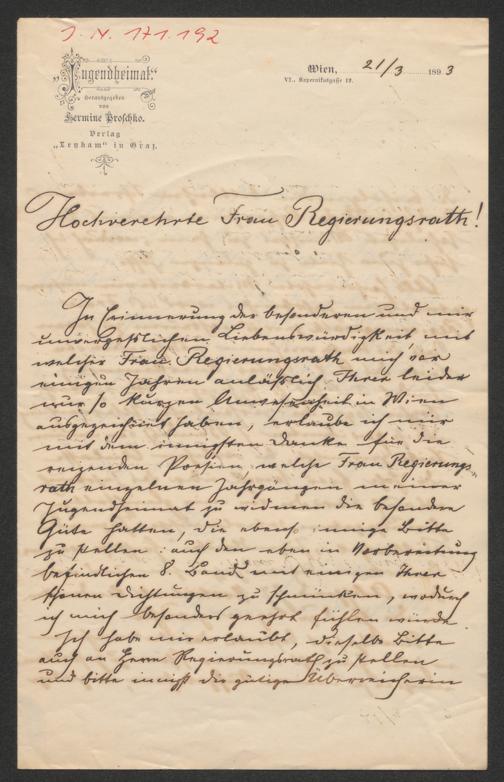 J. N. 171.192
„Jugendheimat.“
Herausgegeben
von
Hermine Proschko.
Verlag
„Leykam“ in Graz.
Wien, 21/3 1893
VI., Kopernikusgasse 12.
Hochverehrte Frau Regierungsrath!
In Erinnerung der besonderen und mir
unvergesslichen Liebenswürdigkeit, mit
welcher Frau Regierungsrath mich vor
einigen Jahren anlässlich Ihrer leider
nur so kurzen Anwesenheit in Wien
ausgezeichnet haben, erlaube ich mir
mit dem innigsten Danke für die
reizenden Poesien, welche Frau Regierungs-
rath einzelnen Jahrgängen meiner
Jugendheimat zu widmen die besondere
Güte hatten, die ebenso innige Bitte
zu stellen: auch den eben in Vorbereitung
befindlichen 8. Band mit einigen Ihrer
schönen Dichtungen zu schmücken, wodurch
ich mich besonders geehrt fühlen würde.
Ich habe mir erlaubt, dieselbe Bitte
auch an Herrn Regierungsrath zu stellen
und bitte innigst die gütige Überreicherin